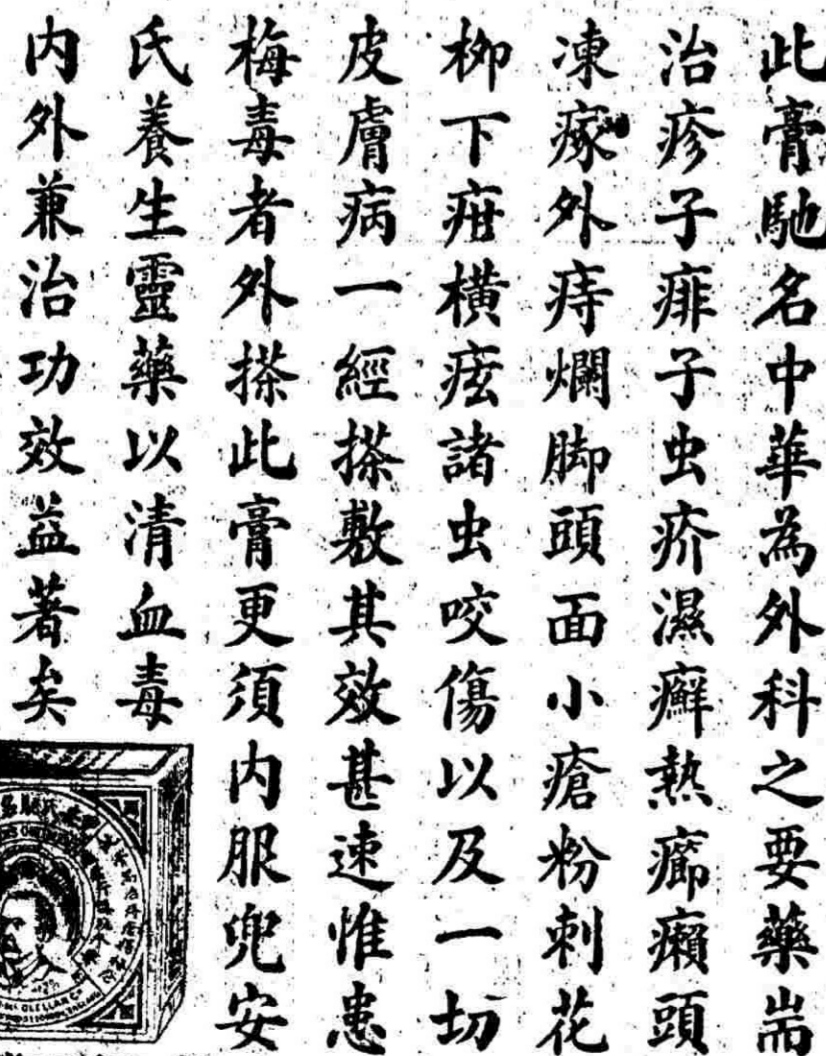 此膏馳名中華為外科之要藥耑
治疹子痱子虫疥濕癬熱癤癩頭
凍瘃外痔爛脚頭面小瘡粉刺花
柳下疳橫痃諸虫咬傷以及一切
皮膚病一經搽敷其效甚速惟患
梅毒者外搽此膏更須内服兜安
氏養生靈藥以清血毒
内外兼治功效益著矣